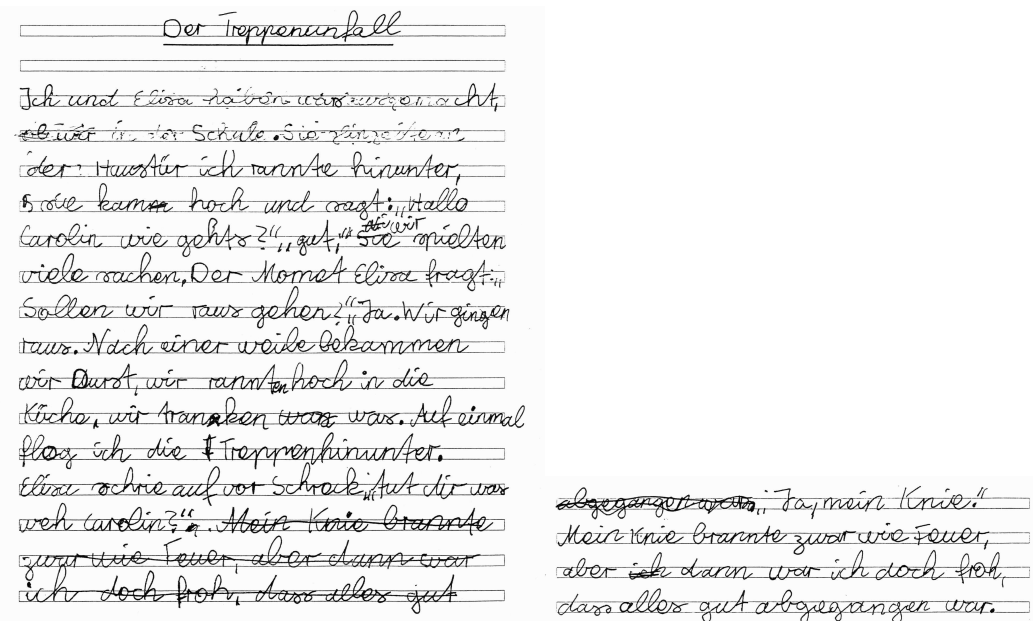 Der Treppenunfall
Ich und Elisa haben was ausgemacht,
in der Schule. Sie
der Haustür ich rannte hinunter,
sie kam hoch und sagt: „Hallo
Carolin wie gehts?“ „gut,“ wir spielten
viele sachen. Der Momet Elisa fragt: „
Sollen wir raus gehen?“ „Ja. Wir gingen
raus. Nach einer weile bekammen
wir Durst, wir rannten hoch in die
Küche, wir tranken was. Auf einmal
flog ich die Treppenhinunter.
Elisa schrie auf vor Schreck, „tut dir was
weh Carolin?“. Mein Knie brannte
zwar wie Feuer, aber dann war
ich doch froh, dass alles gut
abgegangen war. „Ja, mein Knie.“
Mein Knie brannte zwar wie Feuer,
aber ich dann war ich doch froh,
dass alles gut abgegangen war.